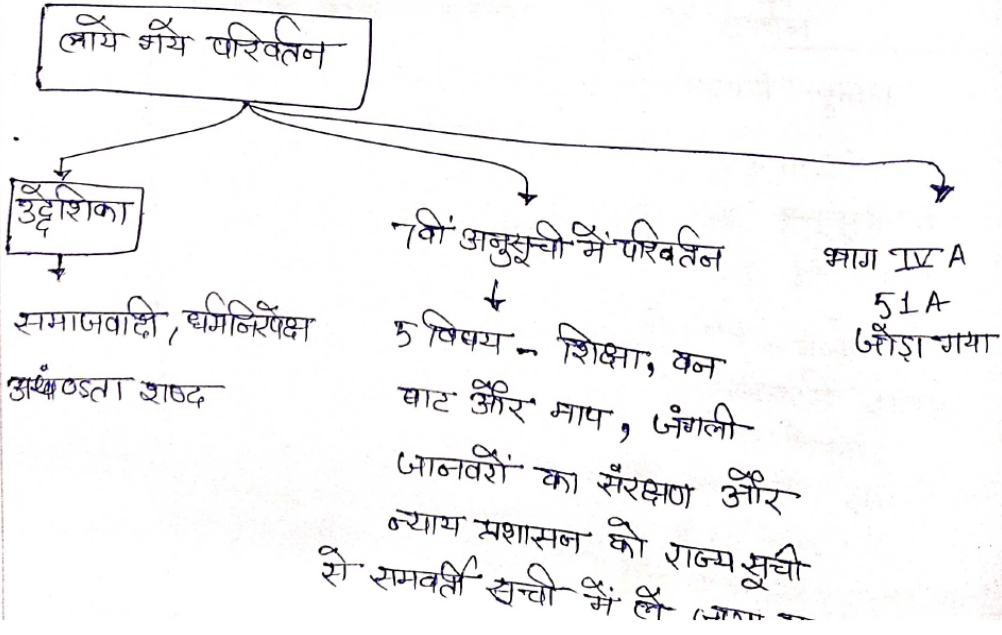 लाये गये परिवर्तन
उद्देशिका
समाजवादी, धर्मनिरपेक्ष
अखण्डता शब्द
7वीं अनुसूची में परिवर्तन
5 विषय - शिक्षा, वन
बाट और माप, जंगली
जानवरों का संरक्षण और
न्याय प्रशासन को राज्य सूची
से समवर्ती सूची में ले
भाग IV A
51A
जोड़ा गया